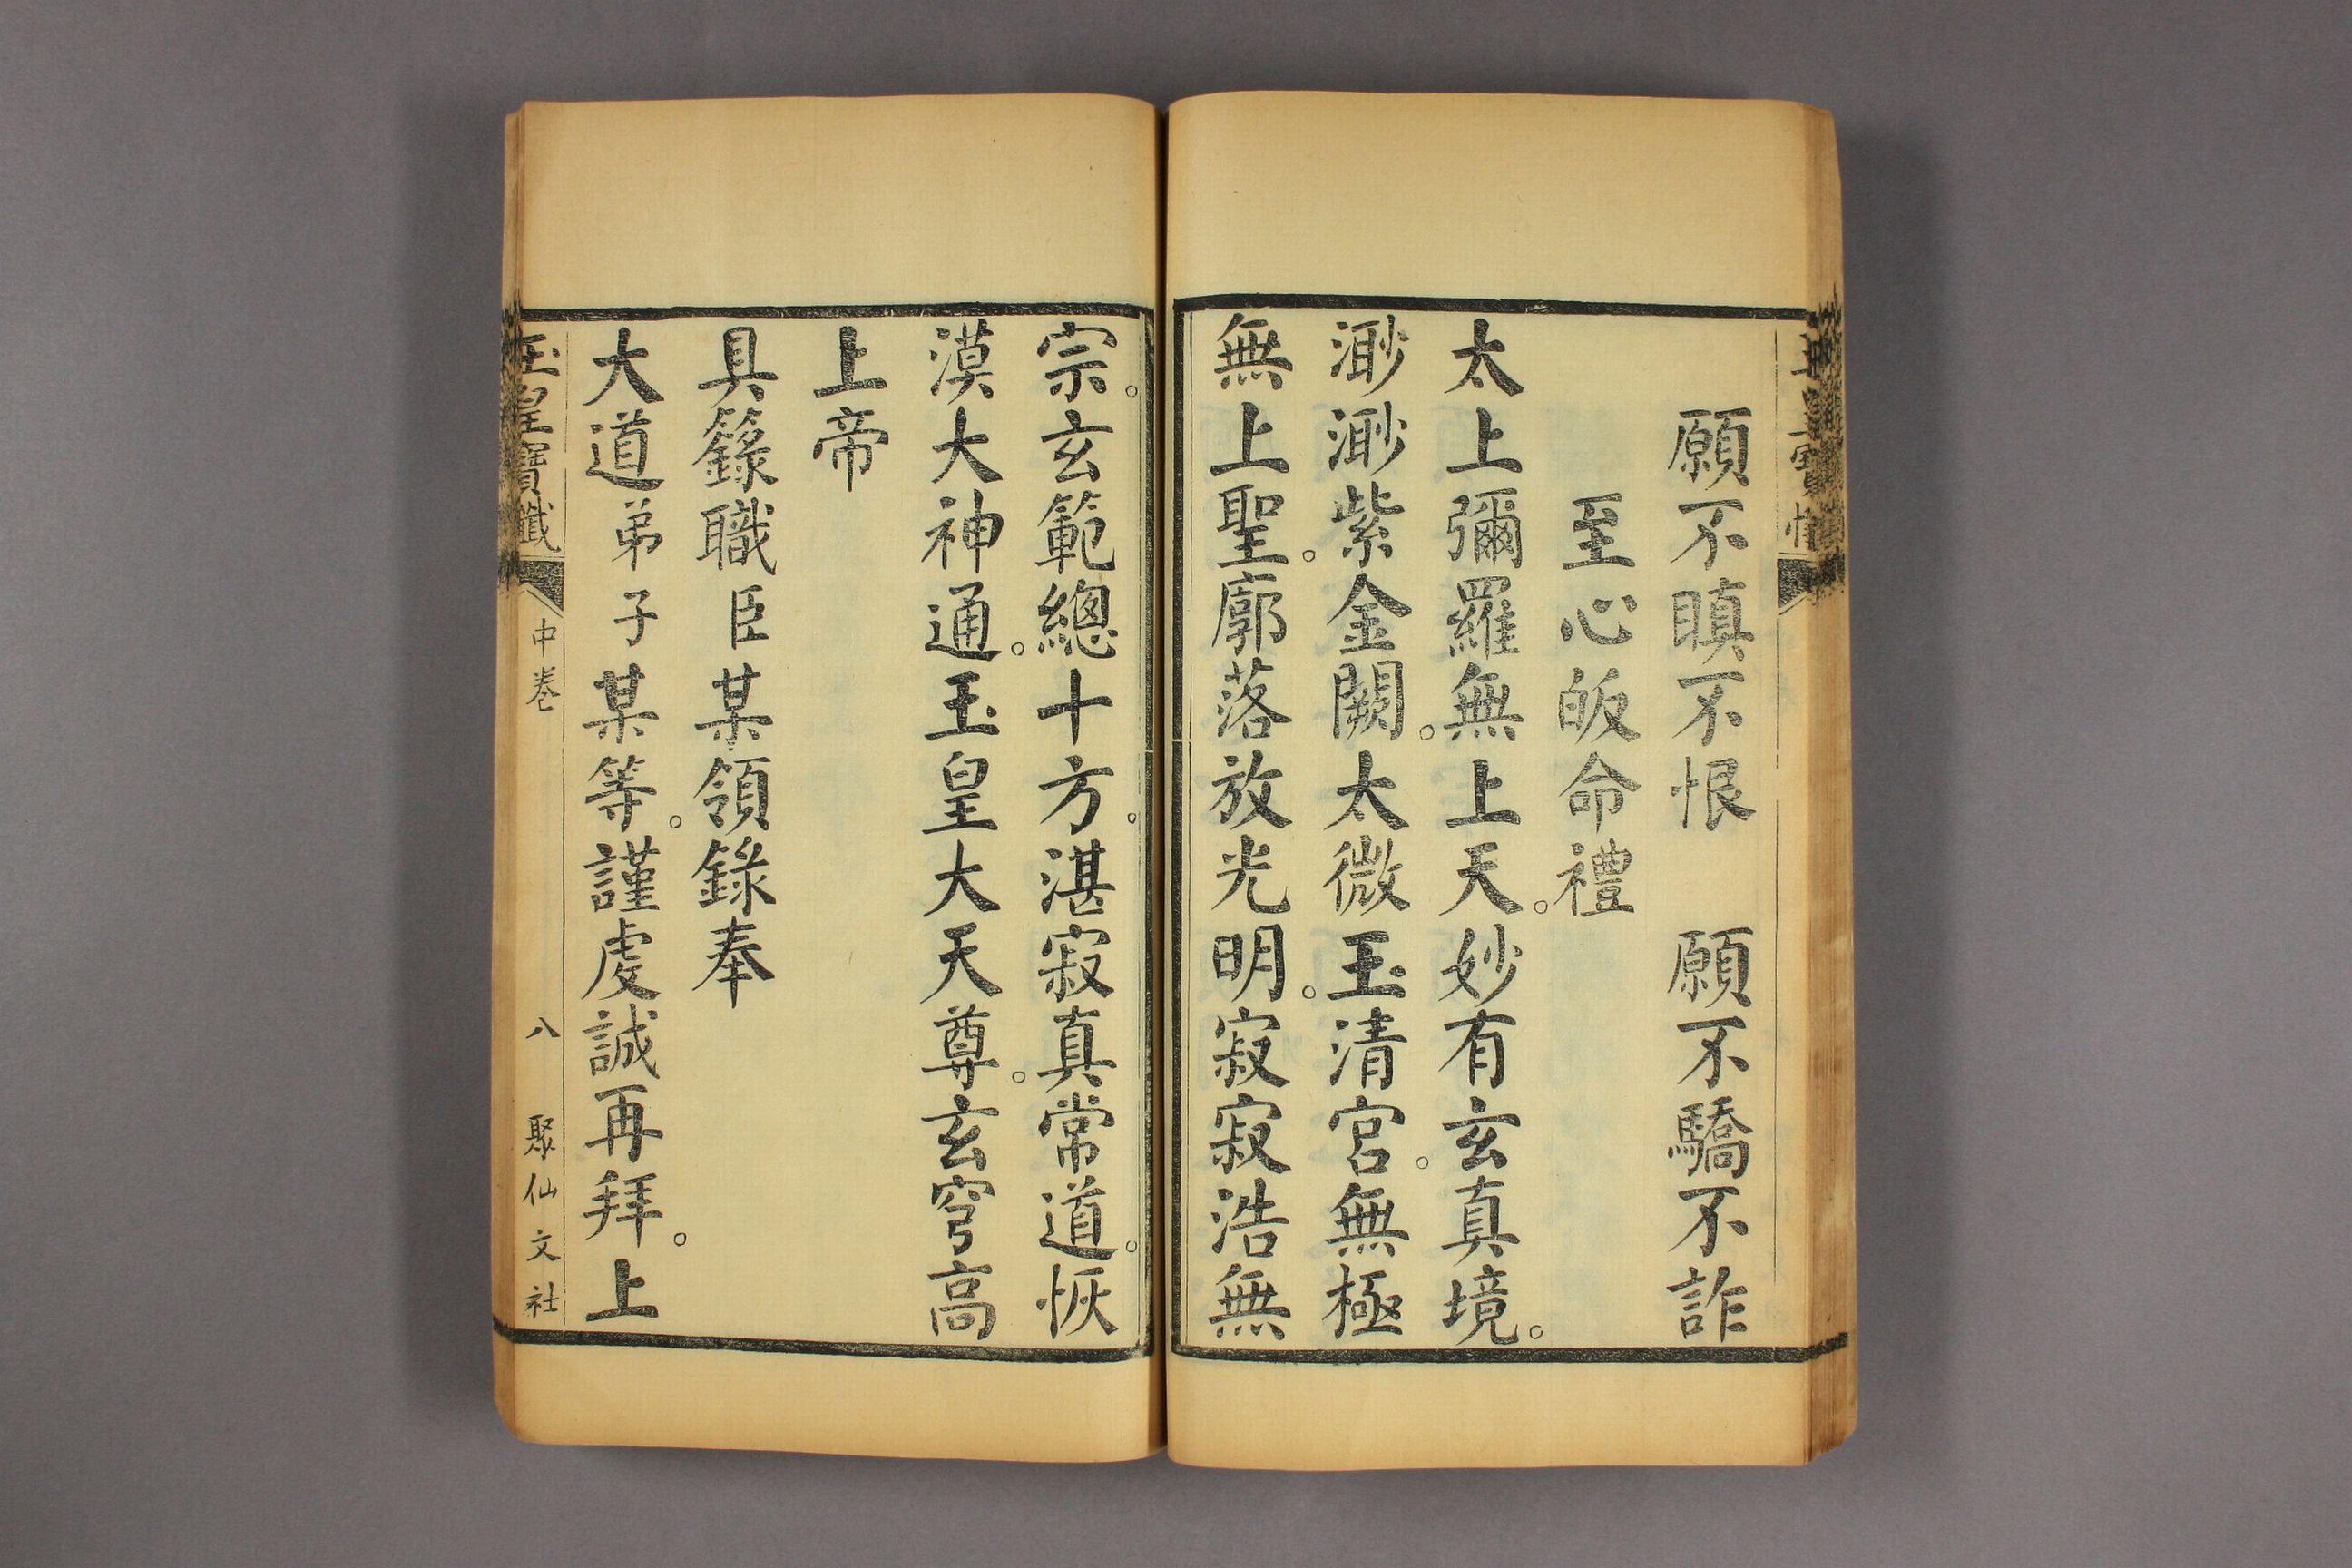 願不瞋不恨　願不驕不詐
至心皈命禮
太上彌羅無上天。妙有玄真境。
渺渺紫金闕。太微玉清宮。無極
無上聖。廓落放光明。寂寂浩無
宗。玄範總十方。湛寂真常道。恢
漠大神通。玉皇大天尊。玄穹高
上帝
具籙職臣某領錄奉
大道弟子某等。謹虔誠再拜。上
玉皇寶懺
中卷
八
聚仙文社